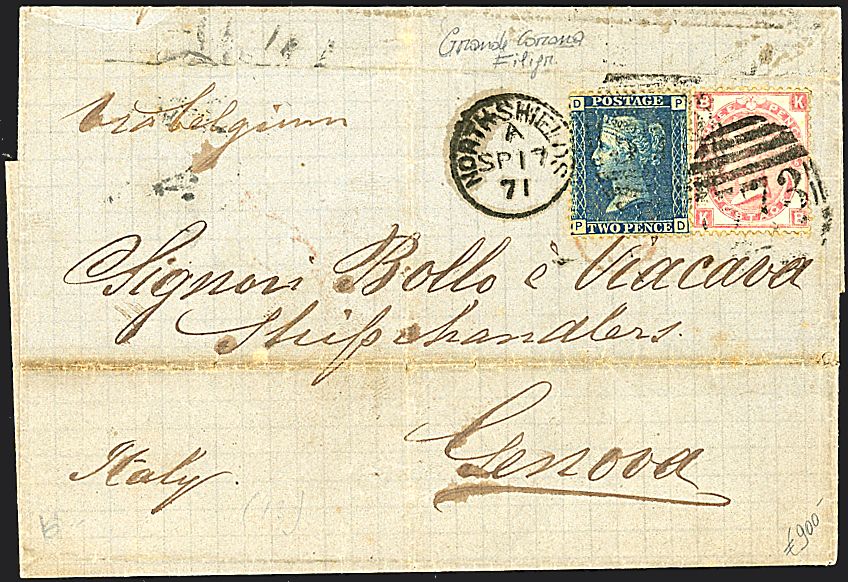 Grande Corona
Filigr.
via Belgium
NORTH SHIELDS
A
SP 17
71
D P
POSTAGE
P D
TWO PENCE
K
PENCE
K
73
Signori Bollo e Viacava
Shipchandlers
Genova
Italy
(1.)
£900-